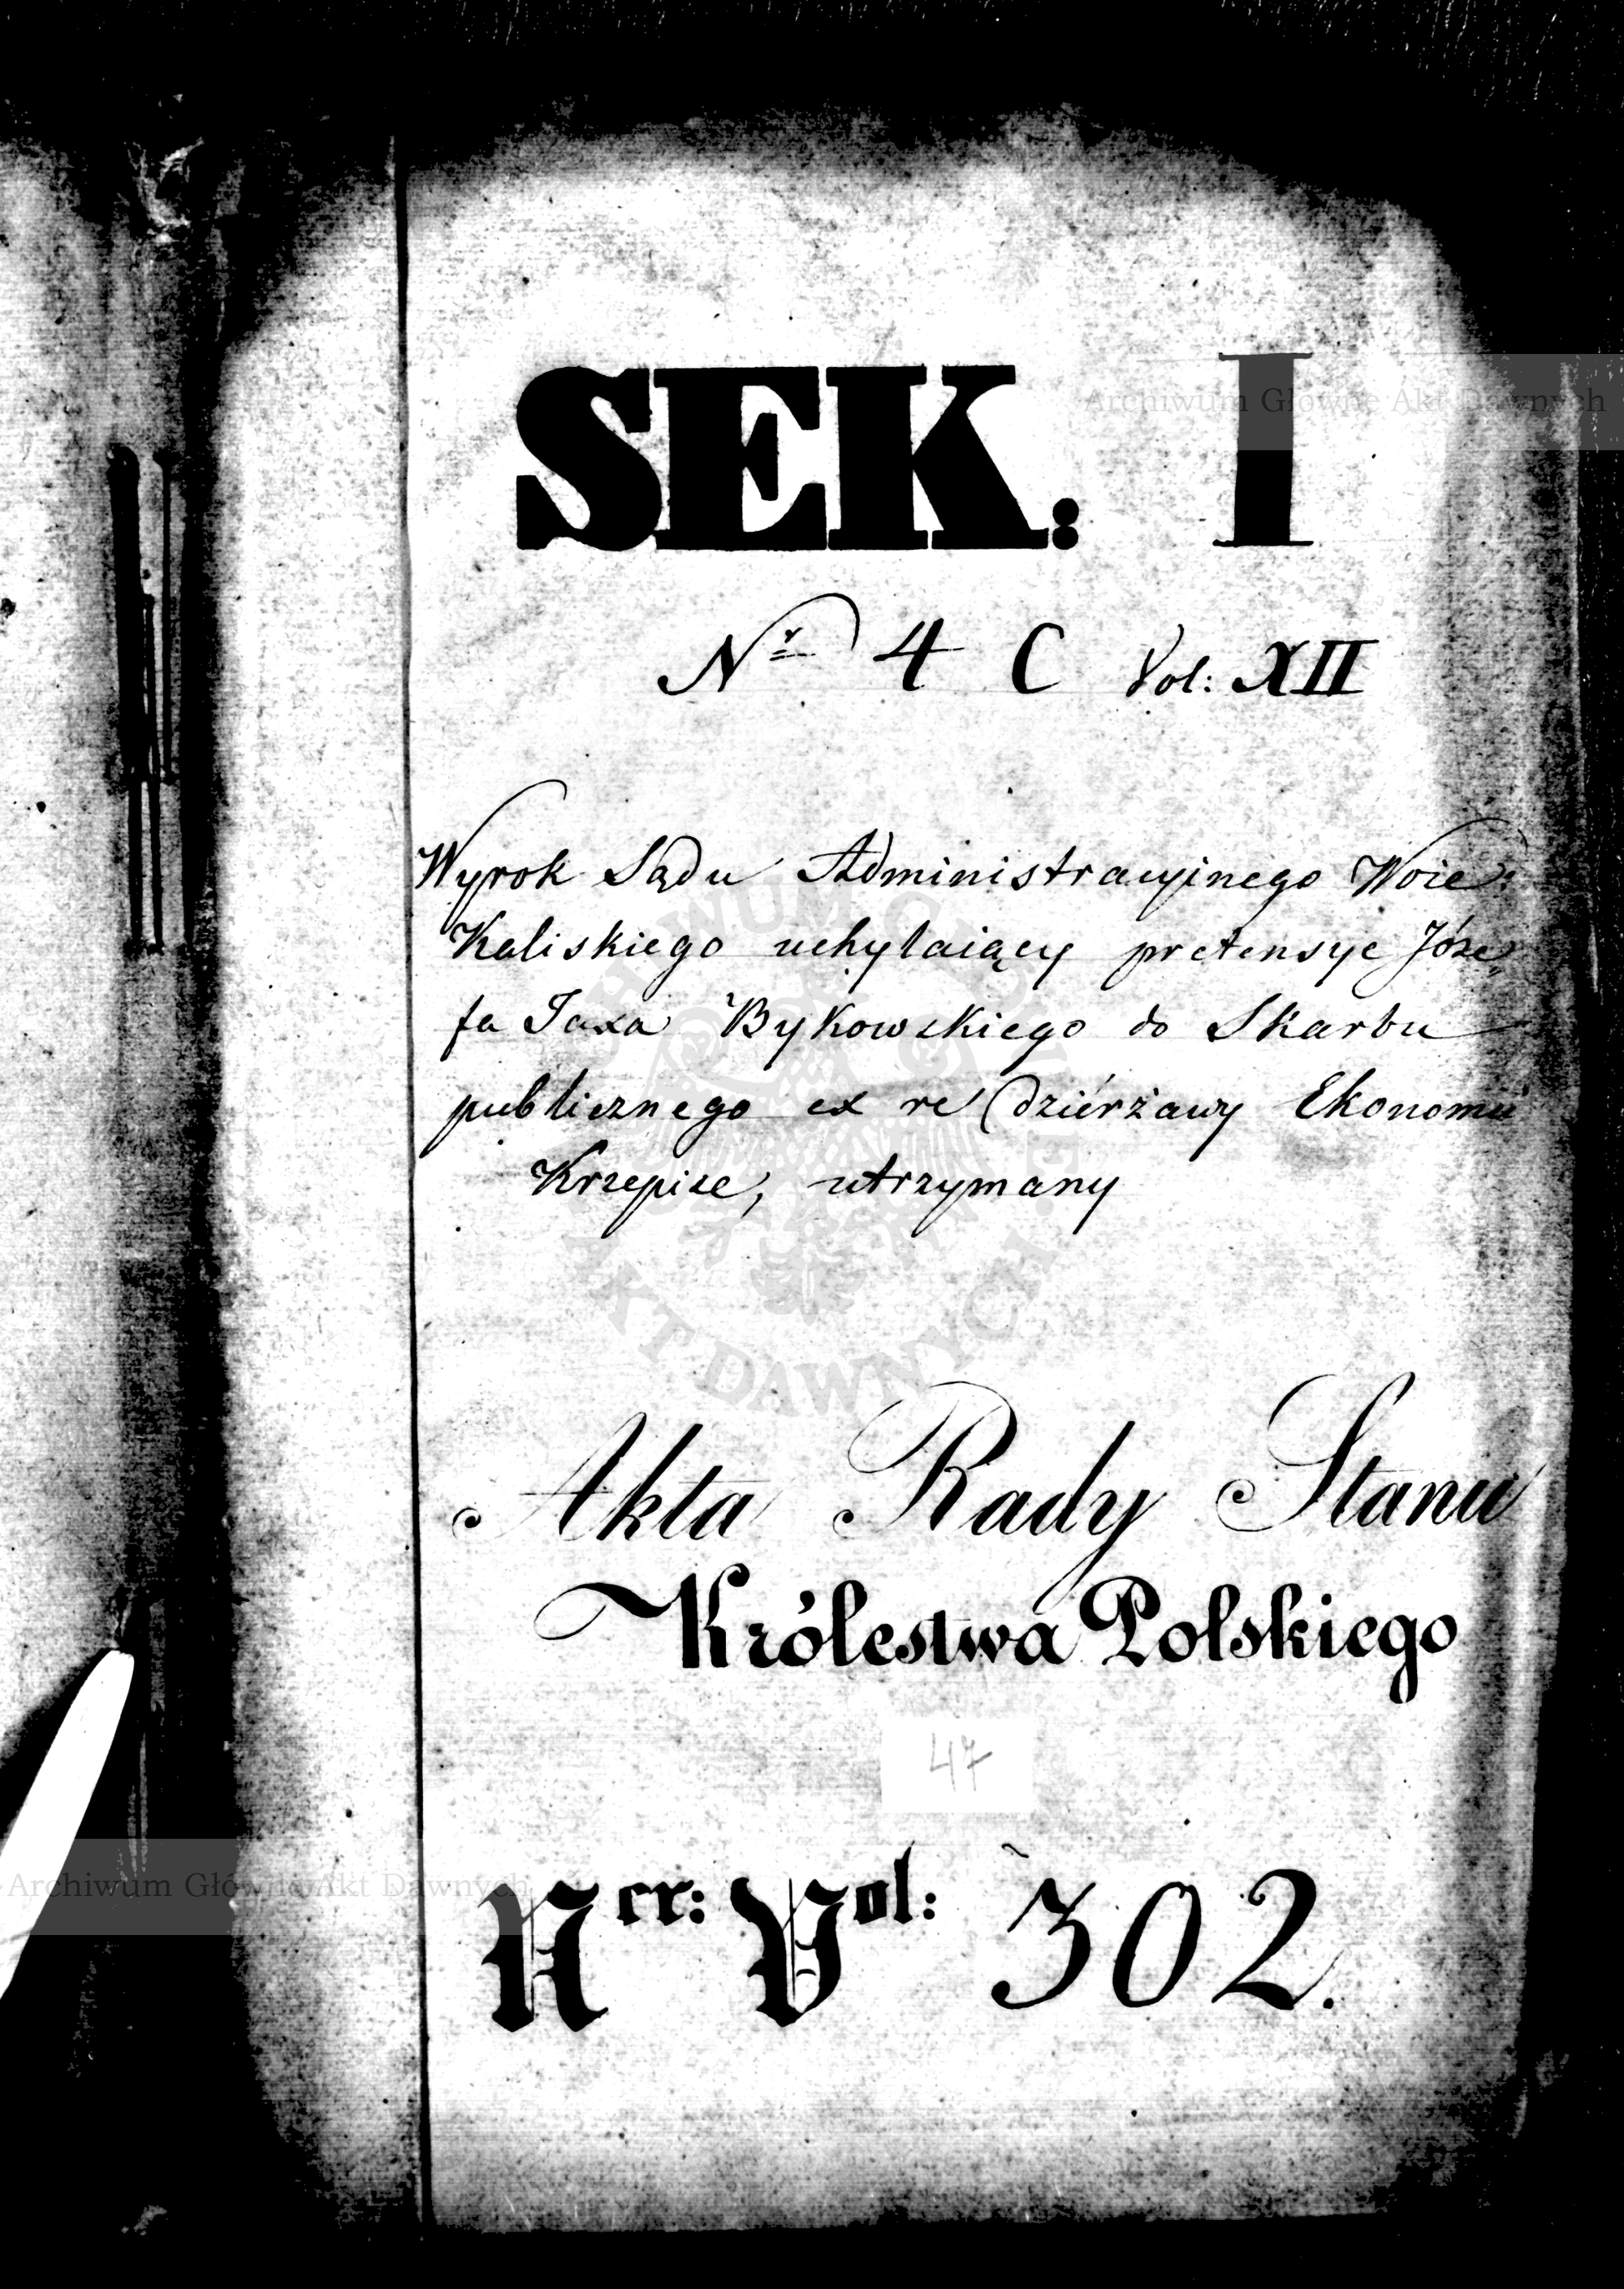 SEK: I
Nr 4 C Vol: XII
Wyrok Sądu Administracyjnego Woie:
Kaliskiego uchylaiący pretensye Józe,
fa Jaxa Bykowskiego do Skarbu
publicznego ex re dziérżawy Ekonomii
Krzepice, utrzymany
Akta Rady Stanu
Królestwa Polskiego
47
Ner: Vol: 302.
Archiwum Główne Akt Dawnych
Archiwum Główne Akt Dawnych
ARCHIWUM GŁÓWNE AKT DAWNYCH